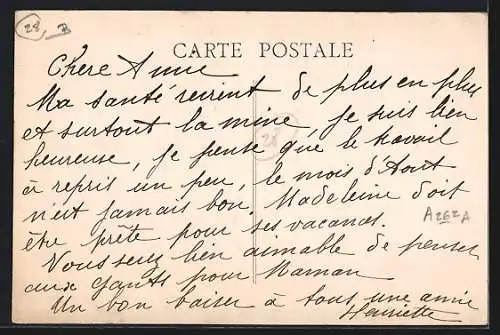 28 B
CARTE POSTALE
Chère Anne
Ma santé revient de plus en plus
et surtout la mine je suis bien
heureuse, je pense que le travail
28
à repris un peu, le mois d'Aout
n'est jamais bon. Madeleine doit
A262A
être prête pour ses vacances.
Vous serez bien aimable de penser
aux gants pour Maman
Un bon baiser à tous, une amie
Henriette